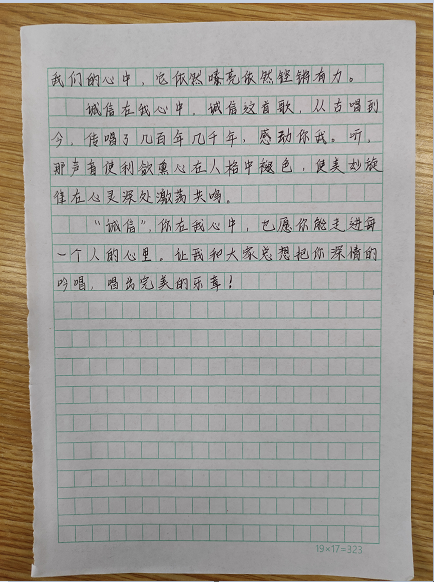 我们的心中，它依然嘹亮依然铿锵有力。
诚信在我心中，诚信这首歌，从古唱到
今，传唱了几百年几千年，感动你我。听，
那声音使利欲熏心在人格中褪色，使美妙旋
律在心灵深处激荡共鸣。
“诚信”，你在我心中，也愿你能走进每
一个人的心里。让我和大家总想把你深情的
吟唱，唱出完美的乐章！
19×17=323